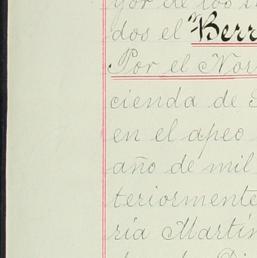 yor de los
dos el "Berr
Por el Nor
cienda de S
en el apeo
año de mil
teriormente
ría Martín